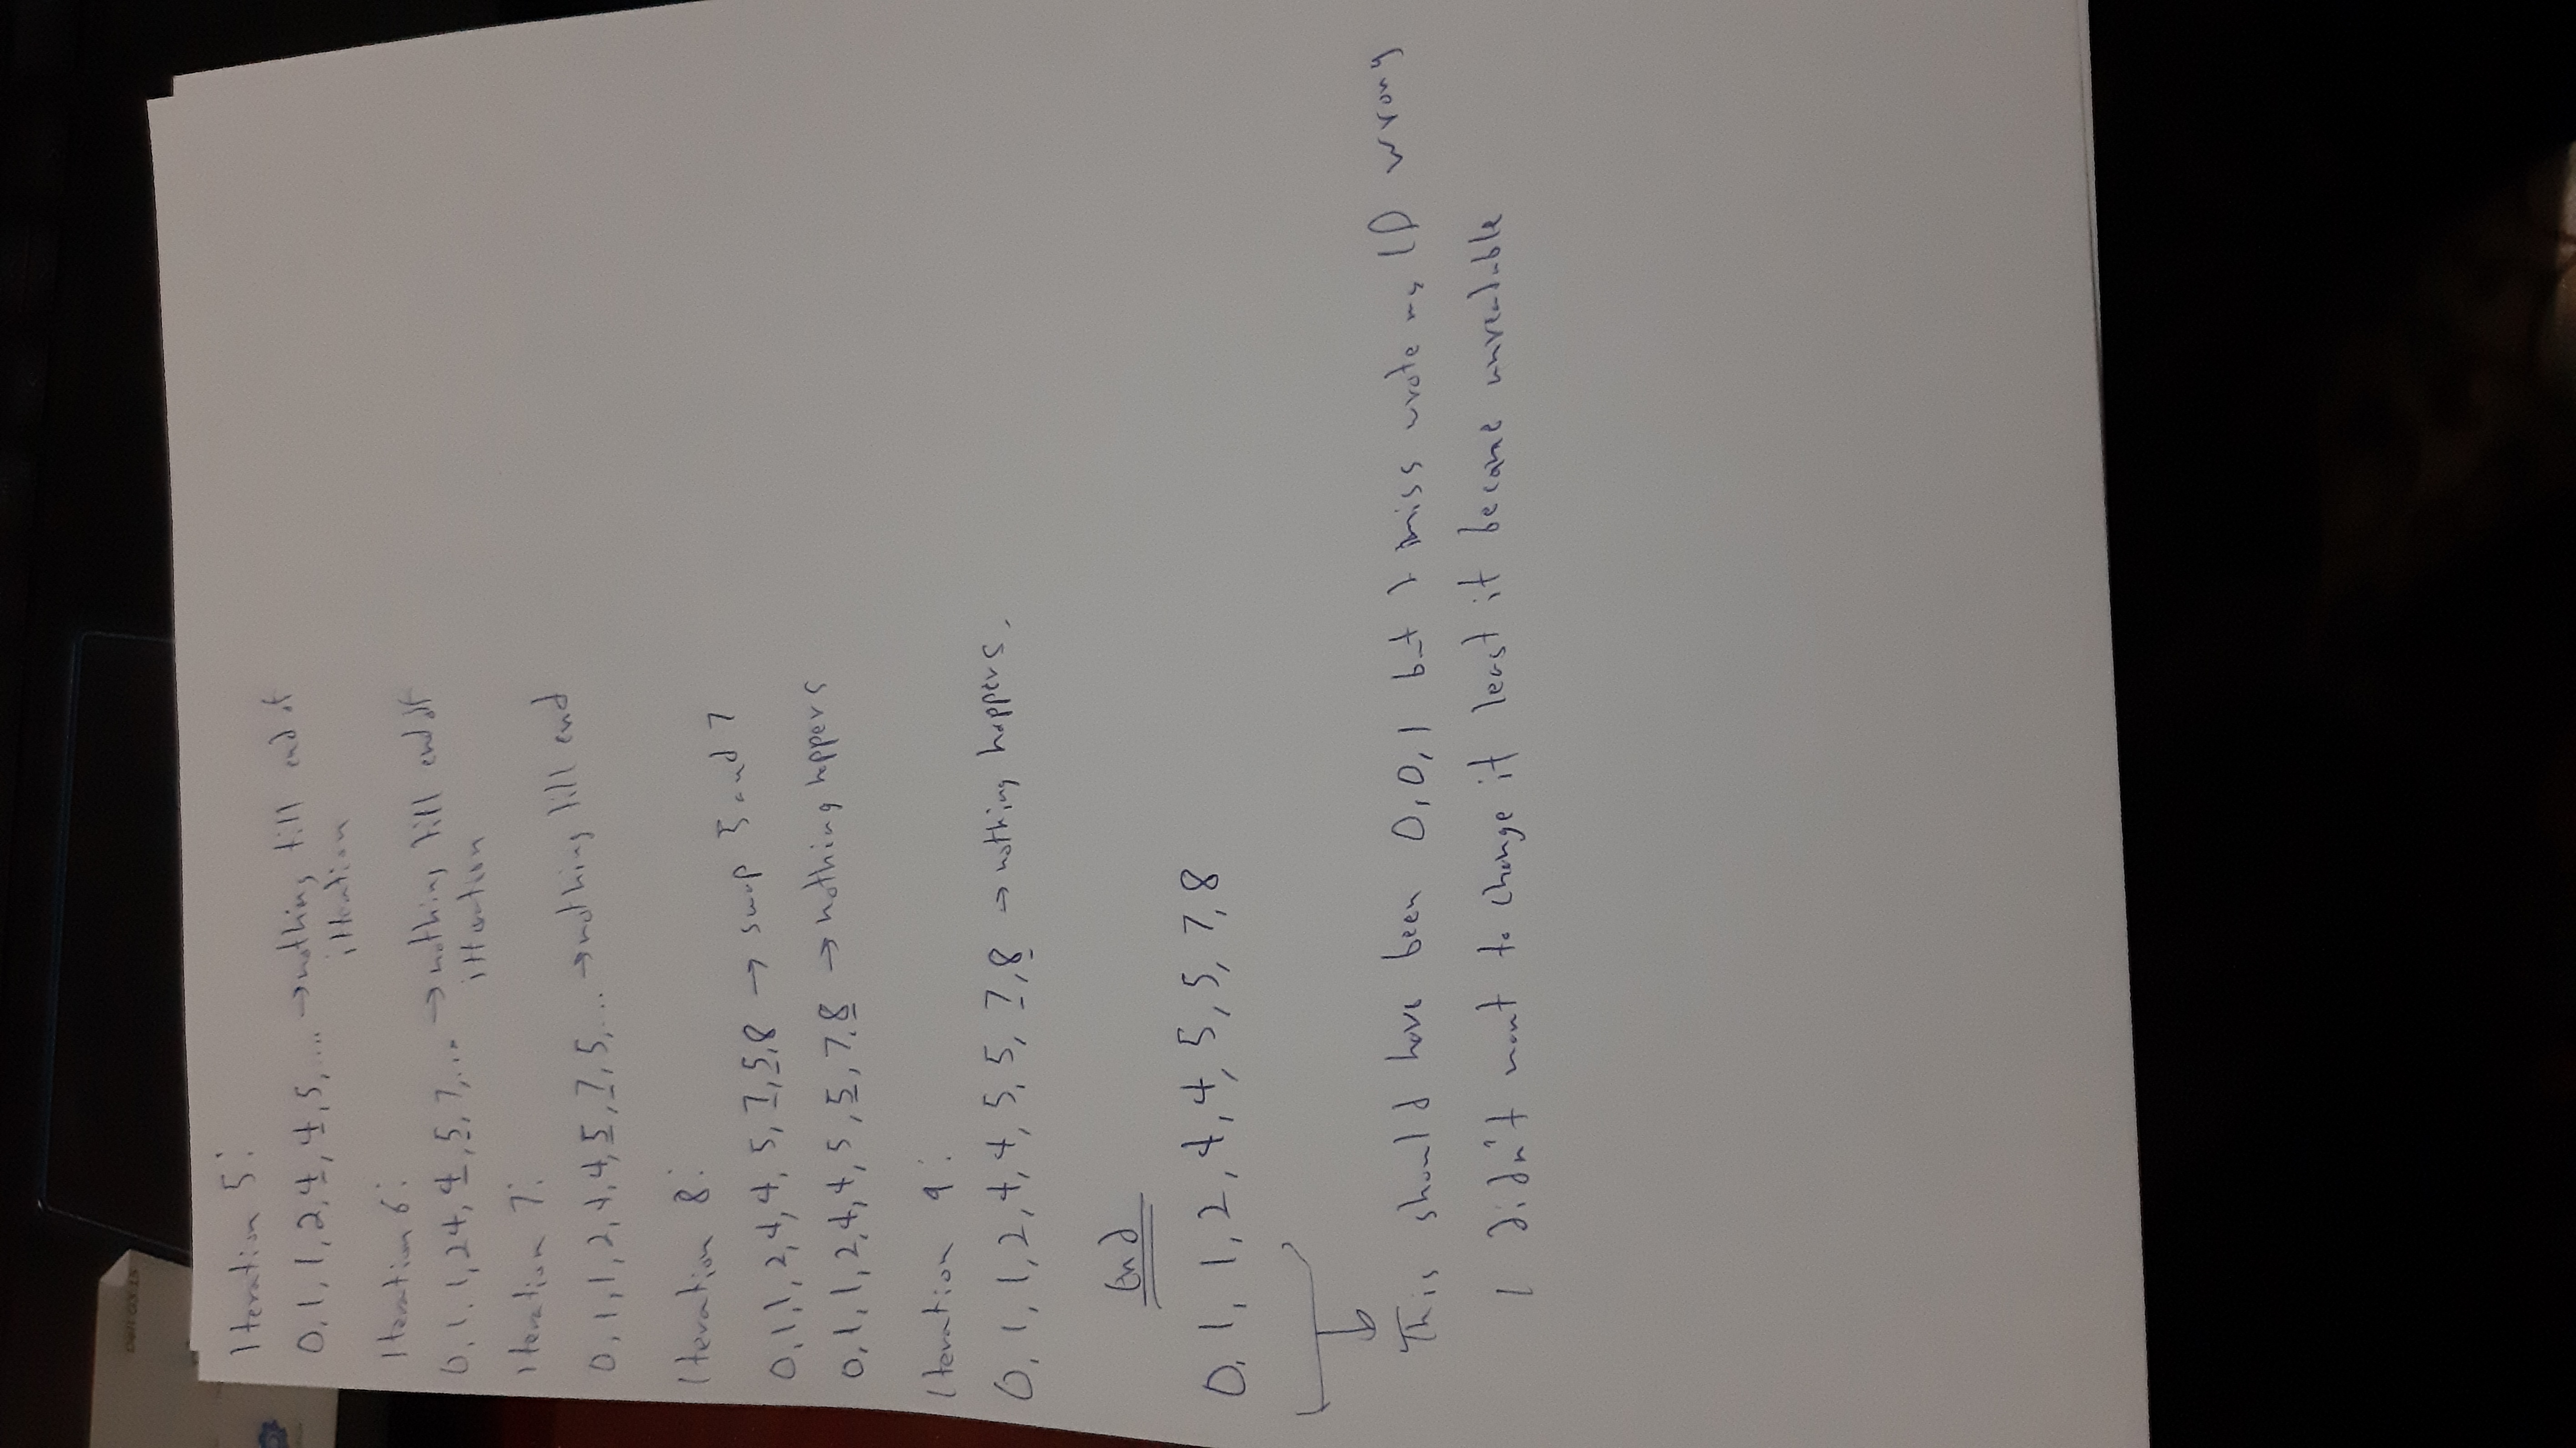 Dell G3 15
Iteration 5:
0, 1, 1, 2, 4, 4, 5, .... → nothing till end of
itteration
Iteration 6:
0, 1, 1, 2 4, 4, 5, 7, ... → nothing till end of
itteration
Iteration 7:
0, 1, 1, 2, 4, 4, 5, 7, 5, ... → nothing till end
Iteration 8:
0, 1, 1, 2, 4, 4, 5, 7, 5, 8 → swap 5 and 7
0, 1, 1, 2, 4, 4, 5, 5, 7, 8 → nothing happens
Iteration 9:
0, 1, 1, 2, 4, 4, 5, 5, 7, 8 → nothing happens.
End
0, 1, 1, 2, 4, 4, 5, 5, 7, 8
This should have been 0, 0, 1 but I miss wrote my ID wrong
I didn't want to change it least it became unreadable